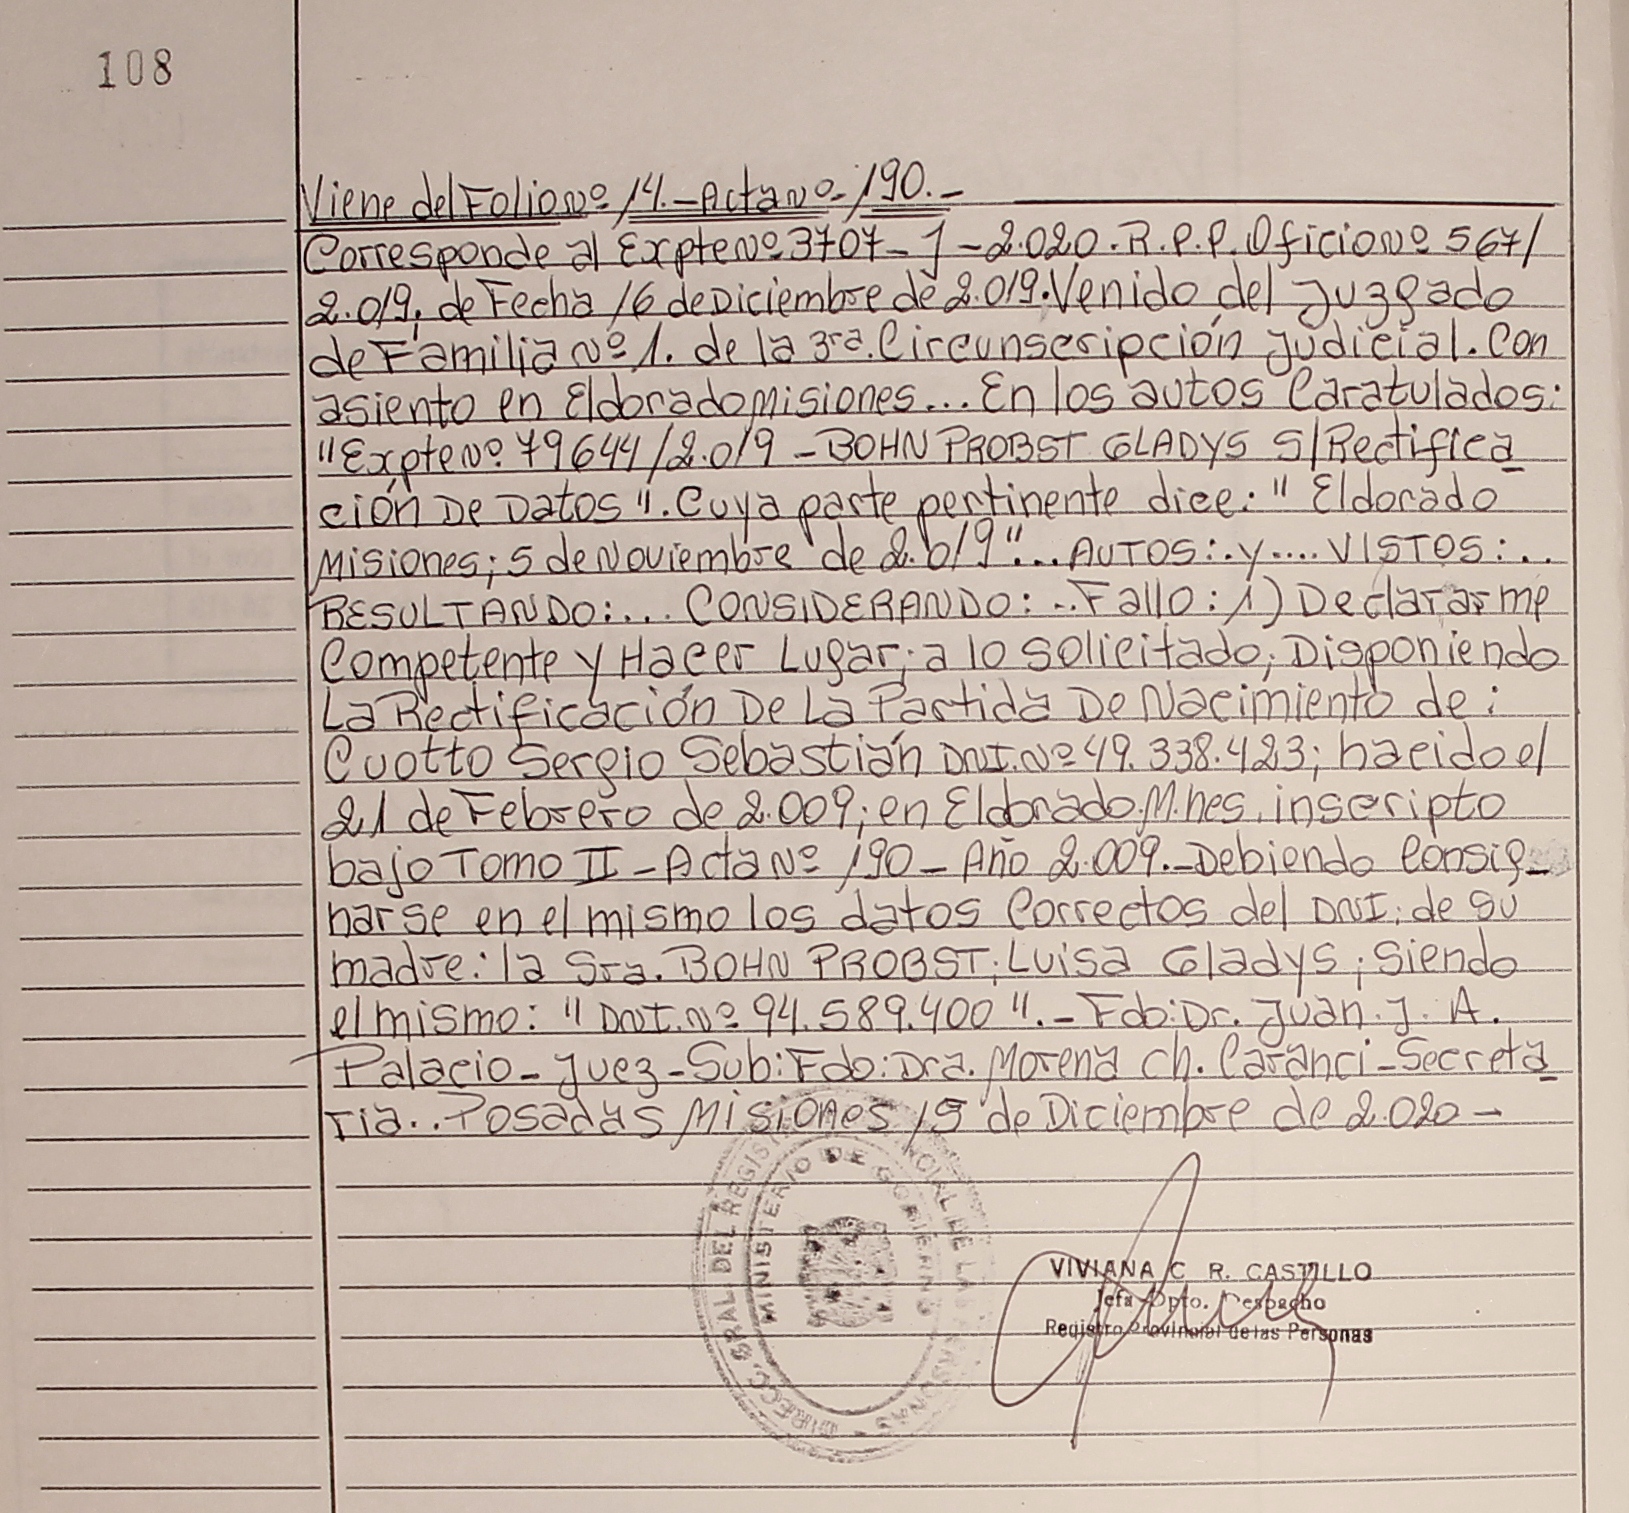 108
Viene del Folio nº 14.-Acta nº-190.-
Corresponde al Expte Nº 3707-J-2.020. R.P.P. Oficio Nº 567/
2.019, de Fecha 16 de Diciembre de 2.019. Venido del Juzgado
de Familia Nº 1. de la 3ra. Circunscripción Judicial. Con
asiento en Eldorado Misiones... En los autos Caratulados:
"Expte Nº 79644/2.019 - BOHN PROBST GLADYS S/Rectifica
ción De Datos". Cuya parte pertinente dice: " Eldorado
Misiones; 5 de Noviembre de 2.019"... AUTOS:. y.... VISTOS:..
RESULTANDO:... CONSIDERANDO: ..Fallo: 1) Declararme
Competente y Hacer Lugar; a lo solicitado; Disponiendo
La Rectificación De La Partida De Nacimiento de:
Cuotto Sergio Sebastián DNI.Nº 49.338.423; nacido el
21 de Febrero de 2.009; en Eldorado.M.nes, inscripto
bajo Tomo II - Acta Nº 190 - Año 2.009.-Debiendo Consig_
narse en el mismo los datos Correctos del DNI; de su
madre: la Sra. BOHN PROBST; Luisa Gladys; Siendo
el mismo: " DNI.Nº 94.589.400 ".- Fdo: Dr. Juan. J. A.
Palacio - Juez - Sub: Fdo: Dra. Morena Ch. Caranci - Secreta_
ria.. Posadas Misiones 15 de Diciembre de 2.020 -
DIRECC. GRAL. DEL REGISTRO PROVINCIAL DE LAS PERSONAS
MINISTERIO DE GOBIERNO
VIVIANA C. R. CASTILLO
Jefa Dpto. Despacho
Registro Provincial de las Personas